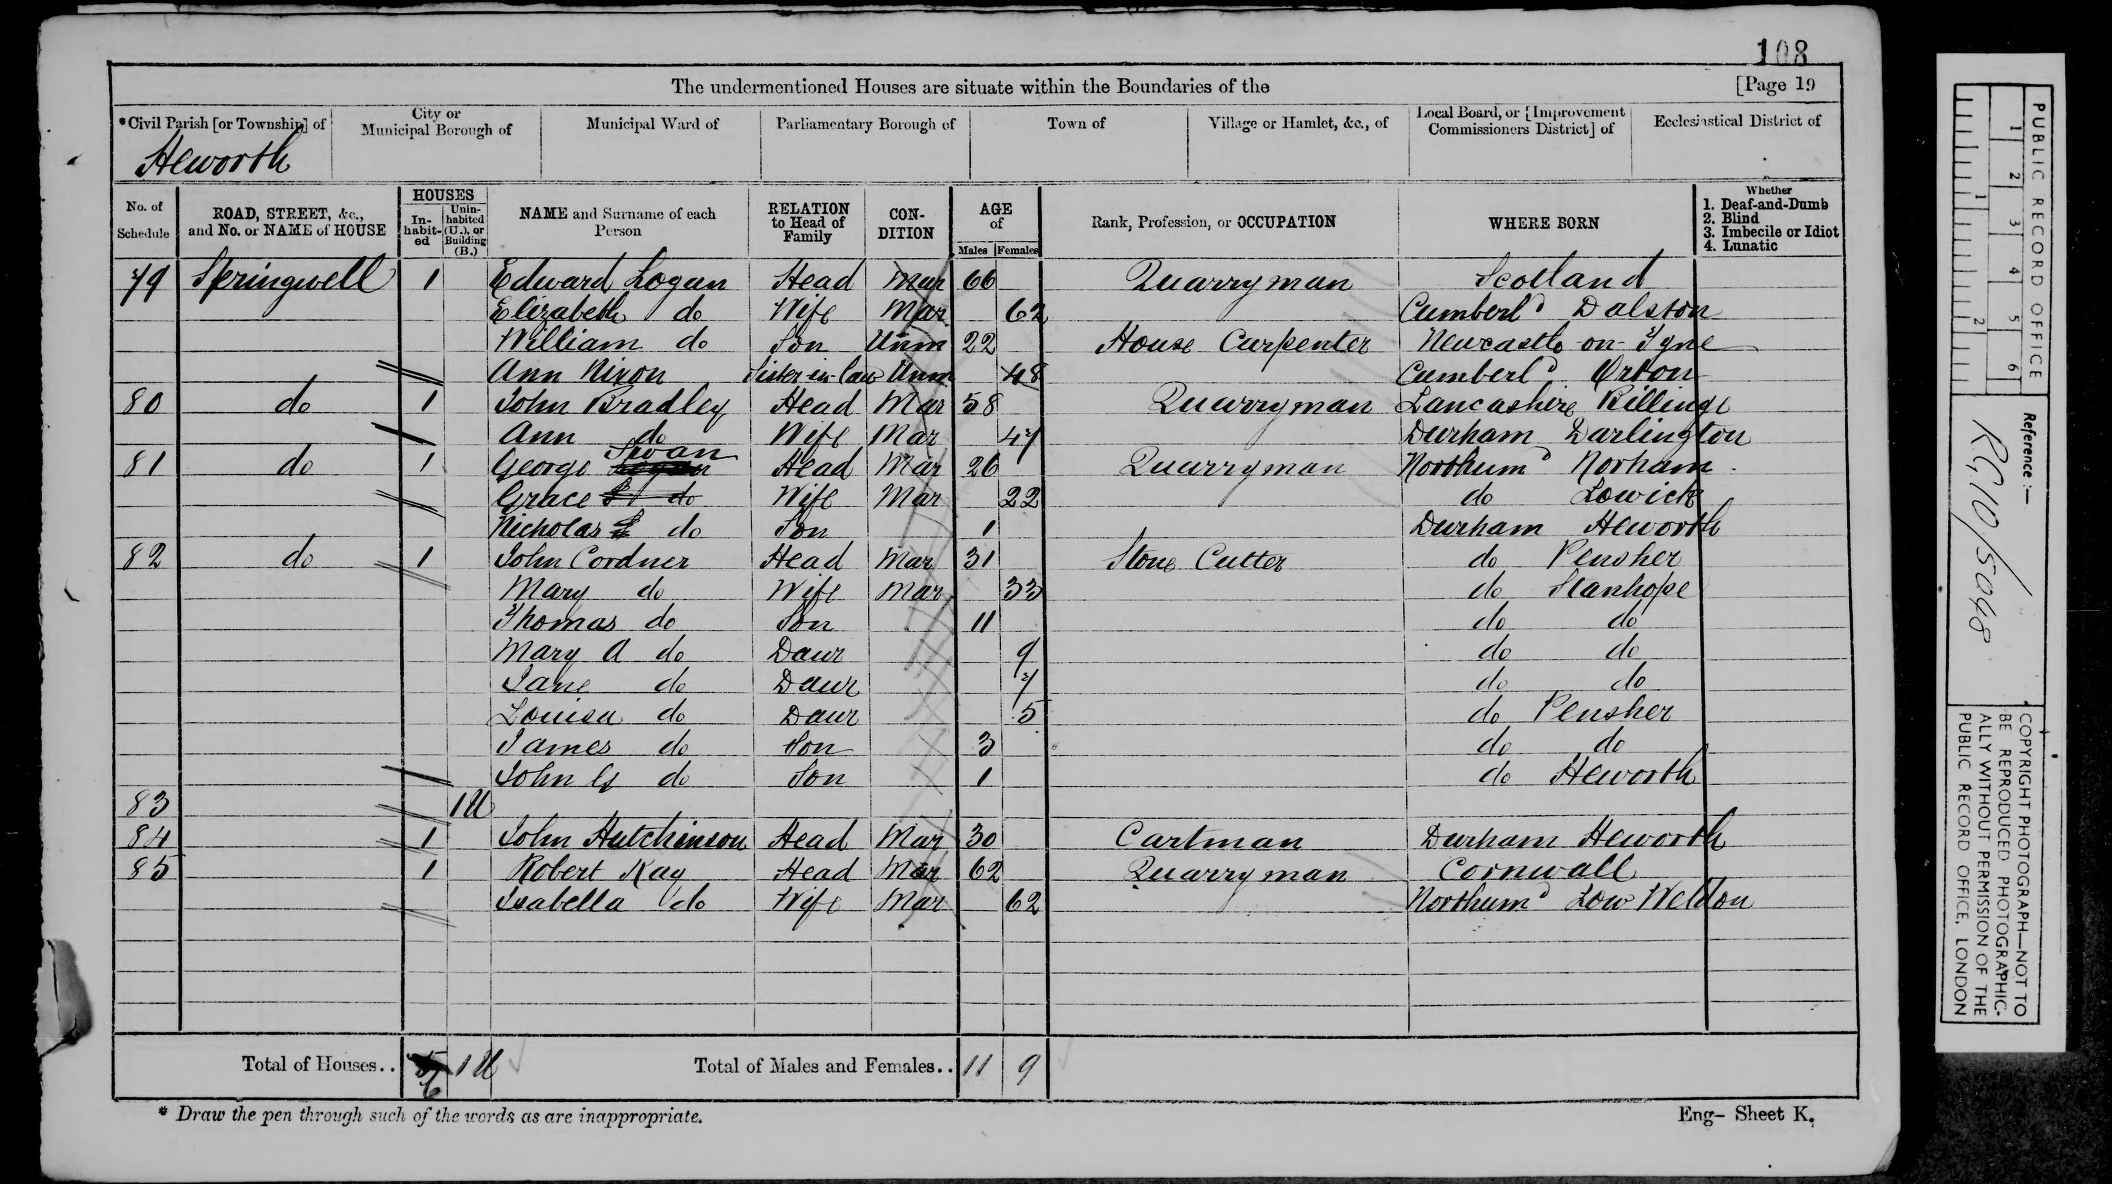 108
The undermentioned Houses are situate within the Boundaries of the [Page 19
*Civil Parish [or Township] of City or Municipal Borough of Municipal Ward of Parliamentary Borough of Town of Village or Hamlet, &c., of Local Board, or [Improvement Commissioners District] of Ecclesiastical District of
Heworth
No. of Schedule ROAD, STREET, &c., and No. or NAME of HOUSE HOUSES In-habit-ed Unin-habited (U.), or Building (B.) NAME and Surname of each Person RELATION to Head of Family CON-DITION AGE of Males Females Rank, Profession, or OCCUPATION WHERE BORN Whether 1. Deaf-and-Dumb 2. Blind 3. Imbecile or Idiot 4. Lunatic
79 Springwell 1 Edward Logan Head Mar 66 Quarryman Scotland
Elizabeth do Wife Mar 62 Cumberld Dalston
William do Son Unm 22 House Carpenter Newcastle-on-Tyne
Ann Nixon Sister-in-law Unm 48 Cumberld Orton
80 do 1 John Bradley Head Mar 58 Quarryman Lancashire Billinge
Ann do Wife Mar 47 Durham Darlington
81 do 1 George Swan Head Mar 26 Quarryman Northumd Norham
Grace do Wife Mar 22 do Lowick
Nicholas do Son 1 Durham Heworth
82 do 1 John Cordner Head Mar 31 Stone Cutter do Pensher
Mary do Wife Mar 33 do Stanhope
Thomas do Son 11 do do
Mary A do Daur 9 do do
Jane do Daur 7 do do
Louisa do Daur 5 do Pensher
James do Son 3 do do
John G do Son 1 do Heworth
83 1U
84 1 John Hutchinson Head Mar 30 Cartman Durham Heworth
85 1 Robert Kay Head Mar 62 Quarryman Cornwall
Isabella do Wife Mar 62 Northumd Low Weldon
Total of Houses.. 6 1U Total of Males and Females.. 11 9
* Draw the pen through such of the words as are inappropriate. Eng- Sheet K.
PUBLIC RECORD OFFICE
1 2 3 4 5 6
1 2
Reference:-
RG 10/5048
COPYRIGHT PHOTOGRAPH—NOT TO
BE REPRODUCED PHOTOGRAPHIC-
ALLY WITHOUT PERMISSION OF THE
PUBLIC RECORD OFFICE, LONDON